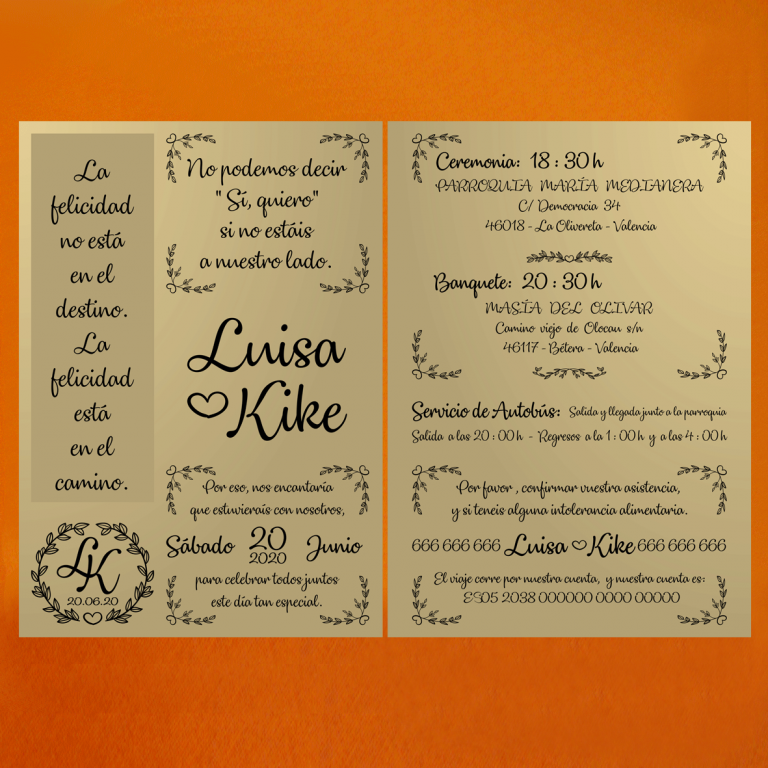 La
felicidad
no está
en el
destino.
La
felicidad
está
en el
camino.
LK
20.06.20
No podemos decir
"Sí, quiero"
si no estáis
a nuestro lado.
Luisa
Kike
Por eso, nos encantaría
que estuvierais con nosotros,
Sábado 20 Junio
2020
para celebrar todos juntos
este día tan especial.
Ceremonia: 18:30 h
PARROQUIA MARÍA MEDIANERA
C/ Democracia 34
46018 - La Olivereta - Valencia
Banquete: 20:30 h
MASÍA DEL OLIVAR
Camino viejo de Olocau s/n
46117 - Bétera - Valencia
Servicio de Autobús: Salida y llegada junto a la parroquia
Salida a las 20:00 h - Regresos a la 1:00 h y a las 4:00 h
Por favor, confirmar vuestra asistencia,
y si teneis alguna intolerancia alimentaria.
666 666 666 Luisa Kike 666 666 666
El viaje corre por nuestra cuenta, y nuestra cuenta es:
ES05 2038 000000 0000 00000